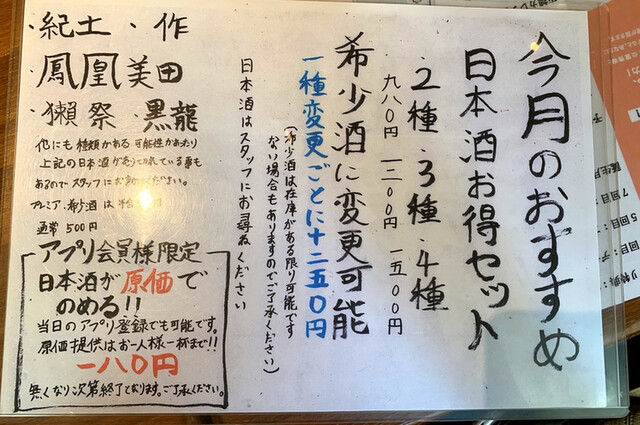 今月のおすすめ
日本酒お得セット
2種・3種・4種
九八〇円 一二〇〇円 一五〇〇円
希少酒に変更可能
一種変更ごとに+二五〇円
(希少酒は在庫がある限り可能です
ない場合もありますのでご了承ください)
日本酒はスタッフにお尋ねください
・紀土・作
・鳳凰美田
・獺祭・黒龍
他にも種類がある可能性があったり
上記の日本酒が売り切れている事も
あるのでスタッフにお尋ねください。
プレミア・希少酒は
通常500円
アプリ会員様限定
日本酒が原価で
のめる!!
当日のアプリ登録でも可能です。
原価提供はお一人様一杯まで!!
一八〇円
無くなり次第終了となります。ご了承ください。